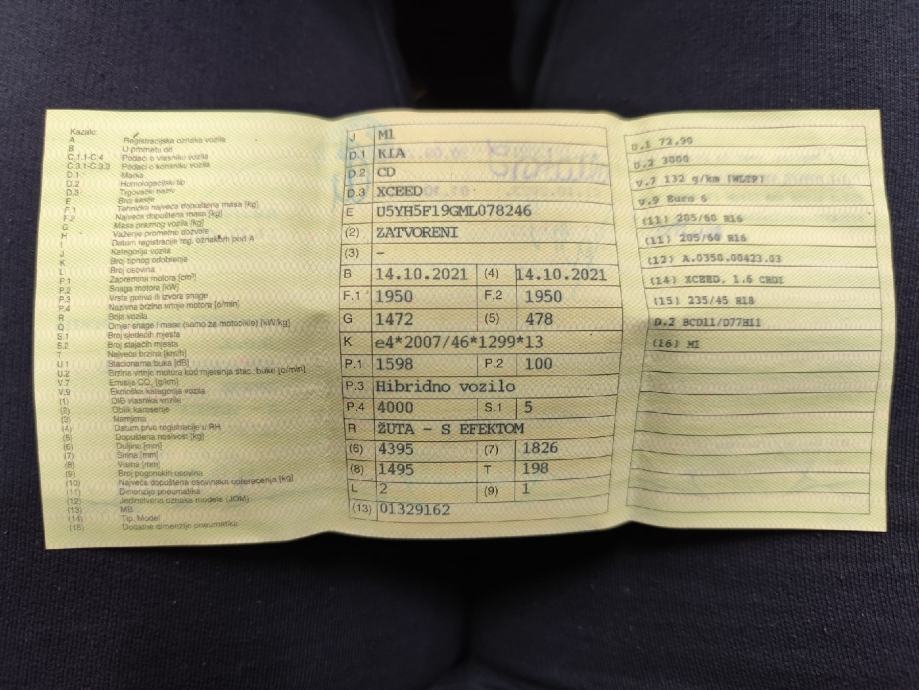 Kazalo:
A Registracijska oznaka vozila
B U prometu od
C.1.1-C.4 Podaci o vlasniku vozila
C.3.1-C.3.3 Podaci o korisniku vozila
D.1 Marka
D.2 Homologacijski tip
D.3 Trgovački naziv
E Broj šasije
F.1 Tehnička najveća dopuštena masa [kg]
F.2 Najveća dopuštena masa [kg]
G Masa praznog vozila [kg]
H Važenje prometne dozvole
I Datum registracije reg. oznakom pod A
J Kategorija vozila
K Broj tipnog odobrenja
L Broj osovina
P.1 Zapremina motora [cm³]
P.2 Snaga motora [kW]
P.3 Vrsta goriva ili izvora snage
P.4 Nazivna brzina vrtnje motora [o/min]
R Boja vozila
Q Omjer snage i mase (samo za motocikle) [kW/kg]
S.1 Broj sjedećih mjesta
S.2 Broj stajaćih mjesta
T Najveća brzina [km/h]
U.1 Stacionarna buka [dB]
U.2 Brzina vrtnje motora kod mjerenja stac. buke [o/min]
V.7 Emisija CO₂ [g/km]
V.9 Ekološka kategorija vozila
(1) OIB vlasnika vozila
(2) Oblik karoserije
(3) Namjena
(4) Datum prve registracije u RH
(5) Dopuštena nosivost [kg]
(6) Duljina [mm]
(7) Širina [mm]
(8) Visina [mm]
(9) Broj pogonskih osovina
(10) Najveća dopuštena osovinska opterećenja [kg]
(11) Dimenzije pneumatika
(12) Jedinstvena oznaka modela (JOM)
(13) MB
(14) Tip, Model
(15) Dodatne dimenzije pneumatika
J M1
D.1 KIA
D.2 CD
D.3 XCEED
E U5YH5F19GML078246
(2) ZATVORENI
(3) –
B 14.10.2021 (4) 14.10.2021
F.1 1950 F.2 1950
G 1472 (5) 478
K e4*2007/46*1299*13
P.1 1598 P.2 100
P.3 Hibridno vozilo
P.4 4000 S.1 5
R ŽUTA - S EFEKTOM
(6) 4395 (7) 1826
(8) 1495 T 198
L 2 (9) 1
(13) 01329162
U.1 72,90
U.2 3000
V.7 132 g/km [WLTP]
V.9 Euro 6
(11) 205/60 R16
(11) 205/60 R16
(12) A.0350.00423.03
(14) XCEED, 1.6 CRDI
(15) 235/45 R18
D.2 BCD11/D77H11
(16) MI